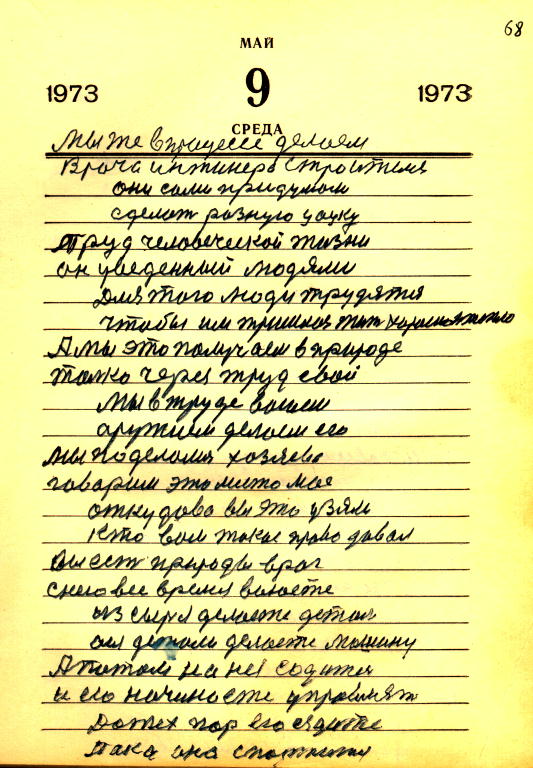 68
МАЙ
1973 9 1973
СРЕДА
Мы же в процессе делаем
Врача инженера строителя
они сами придумали
сделат разную уацку
Труд человеческой жизни
он уведенный людями
Для этого люди трудятся
чтобы им пришлос жит хорошо тепло
А мы это получаем в природе
толко через труд свой
Мы в труде воюем
аружием делаем его
мы поделамя хозяева
говарим это место мое
откудова вы это узяли
Кто вам такое право давал
Вы ест природы враг
с нею все время воюете
из сыря делаете детал
аш детали делаете машину
А потом на нея садитея
и ею начиноете управлят
До тех пор ею ездите
пака она спатыкнетя